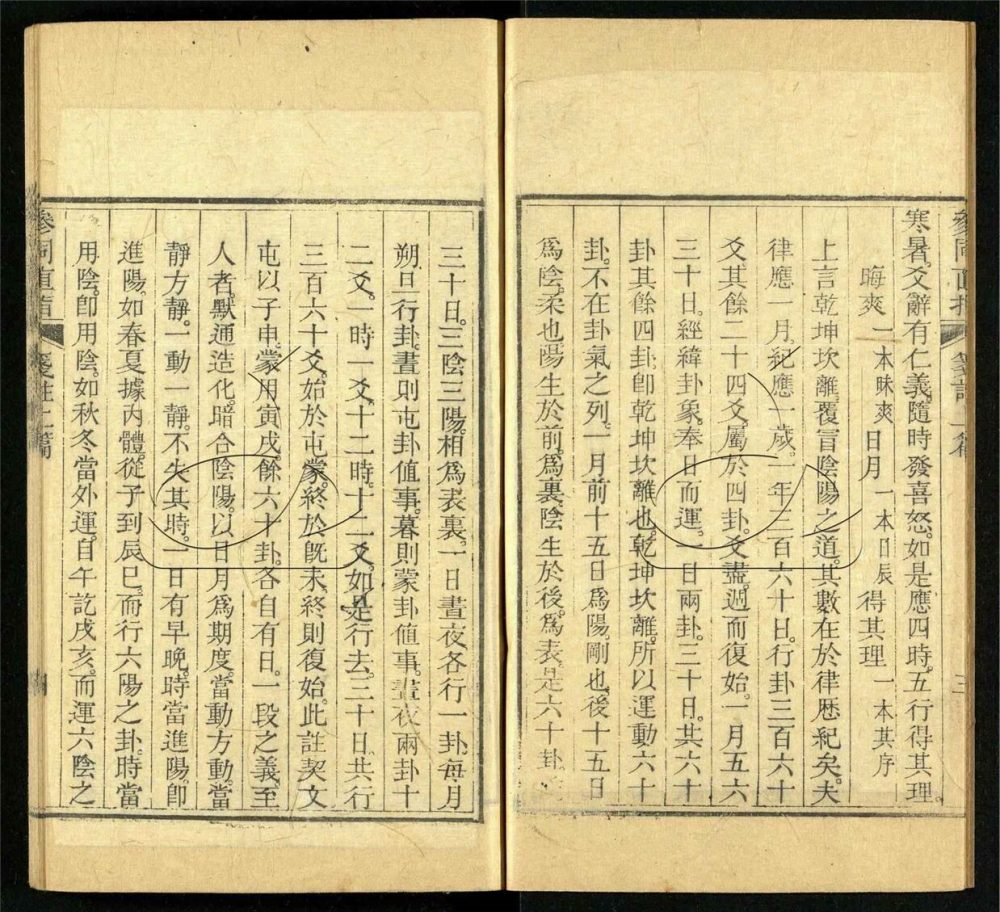 寒暑。爻辭有仁義。隨時發喜怒。如是應四時。五行得其理。
晦爽 一本昧爽 日月 一本日辰 得其理 一本其序
上言乾坤坎離。覆冒陰陽之道。其數在於律歷紀矣。夫
律應一月。紀應一歲。一年三百六十日。行卦三百六十
爻。其餘二十四爻。屬於四卦。爻盡。週而復始。一月五六
三十日。經緯卦象。奉日而運。一日兩卦。三十日。共六十
卦。其餘四卦。卽乾坤坎離也。乾坤坎離。所以運動六十
卦。不在卦氣之列。一月前十五日爲陽。剛也。後十五日
爲陰。柔也。陽生於前。爲裏。陰生於後。爲表。是六十卦。
參同直指 箋註上篇 三
三十日。三陰三陽。相爲表裏。一日晝夜各行一卦。每月
朔旦行卦。晝則屯卦值事。暮則蒙卦値事。晝夜兩卦十
二爻。一時一爻。十二時。十二爻。如是行去。三十日。共行
三百六十爻。始於屯蒙。終於旣未。終則復始。此註契文
屯以子申。蒙用寅戌。餘六十卦。各自有日。一段之義。至
人者。默通造化。暗合陰陽。以日月爲期度。當動方動。當
靜方靜。一動一靜。不失其時。一日有早晚。時當進陽。卽
進陽。如春夏據內體。從子到辰巳。而行六陽之卦。時當
用陰。卽用陰。如秋冬當外運。自午訖戌亥。而運六陰之
參同直指 箋註上篇